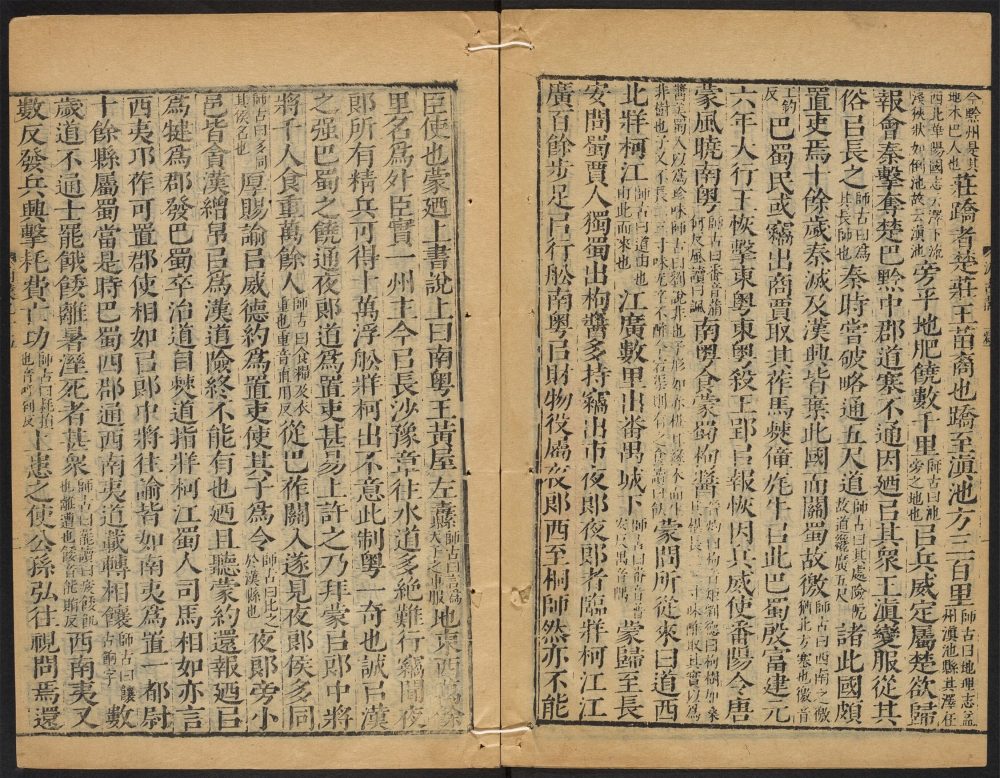 今黔州是其地本巴人也莊蹻者楚莊王苗裔也蹻至滇池方三百里師古曰地理志益州滇池縣其澤在
西北華陽國志云澤下流淺狹狀如倒池故云滇池旁平地肥饒數千里師古曰池旁之地也㠯兵威定屬楚欲歸
報會秦擊奪楚巴黔中郡道塞不通因迺㠯其衆王滇變服從其
俗㠯長之師古曰為其長帥也秦時嘗破略通五尺道師古曰其處險阸故道纔廣五尺諸此國頗
置吏焉十餘歲秦滅及漢興皆棄此國而關蜀故徼師古曰西南之徼猶北方塞也徼音
工釣反巴蜀民或竊出商賈取其莋馬僰僮旄牛㠯此巴蜀殷富建元
六年大行王恢擊東粵東粵殺王郢㠯報恢因兵威使番陽令唐
蒙風曉南粵師古曰番音蒲何反風讀曰諷南粵食蒙蜀枸醬晉灼曰枸音矩劉德曰枸樹如桑其椹長二三寸味酢取其實以為
醬美蜀人以為珍味師古曰劉說非也子形如桑椹耳緣木而生非樹也子又不長二三寸味尤辛不酢今宕渠則有之食讀曰飤蒙問所從來曰道西
北牂柯江師古曰道由也由此而來也江廣數里出番禺城下師古曰番音普安反禺音隅蒙歸至長
安問蜀賈人獨蜀出枸醬多持竊出市夜郎夜郎者臨牂柯江江
廣百餘步足㠯行船南粵㠯財物役屬夜郎西至桐師然亦不能
臣使也蒙迺上書說上曰南粵王黃屋左纛師古曰言為天子之車服地東西萬餘
里名為外臣實一州主今㠯長沙豫章往水道多絕難行竊聞夜
郎所有精兵可得十萬浮船牂柯出不意此制粵一奇也誠㠯漢
之强巴蜀之饒通夜郎道為置吏甚易上許之乃拜蒙㠯郎中將
將千人食重萬餘人師古曰食糧及衣重也重音直用反從巴莋關入遂見夜郎侯多同
師古曰多同其侯名也厚賜諭㠯威德約為置吏使其子為令師古曰比之於漢縣也夜郎旁小
邑皆貪漢繒帛㠯為漢道險終不能有也迺且聽蒙約還報迺㠯
為犍為郡發巴蜀卒治道自僰道指牂柯江蜀人司馬相如亦言
西夷邛莋可置郡使相如㠯郎中將往諭皆如南夷為置一都尉
十餘縣屬蜀當是時巴蜀四郡通西南夷道載轉相饟師古曰饟古餉字數
歲道不通士罷餓餧離暑溼死者甚衆師古曰罷讀曰疲餧飢也離遭也餧音能賄反西南夷又
數反發兵興擊耗費亡功師古曰耗損也音呼到反上患之使公孫弘往視問焉還